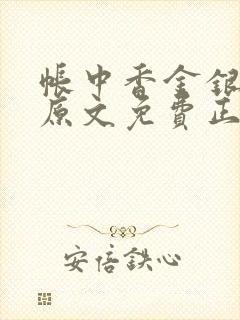 帳中香金銀
原文免費正
安倍鉄心